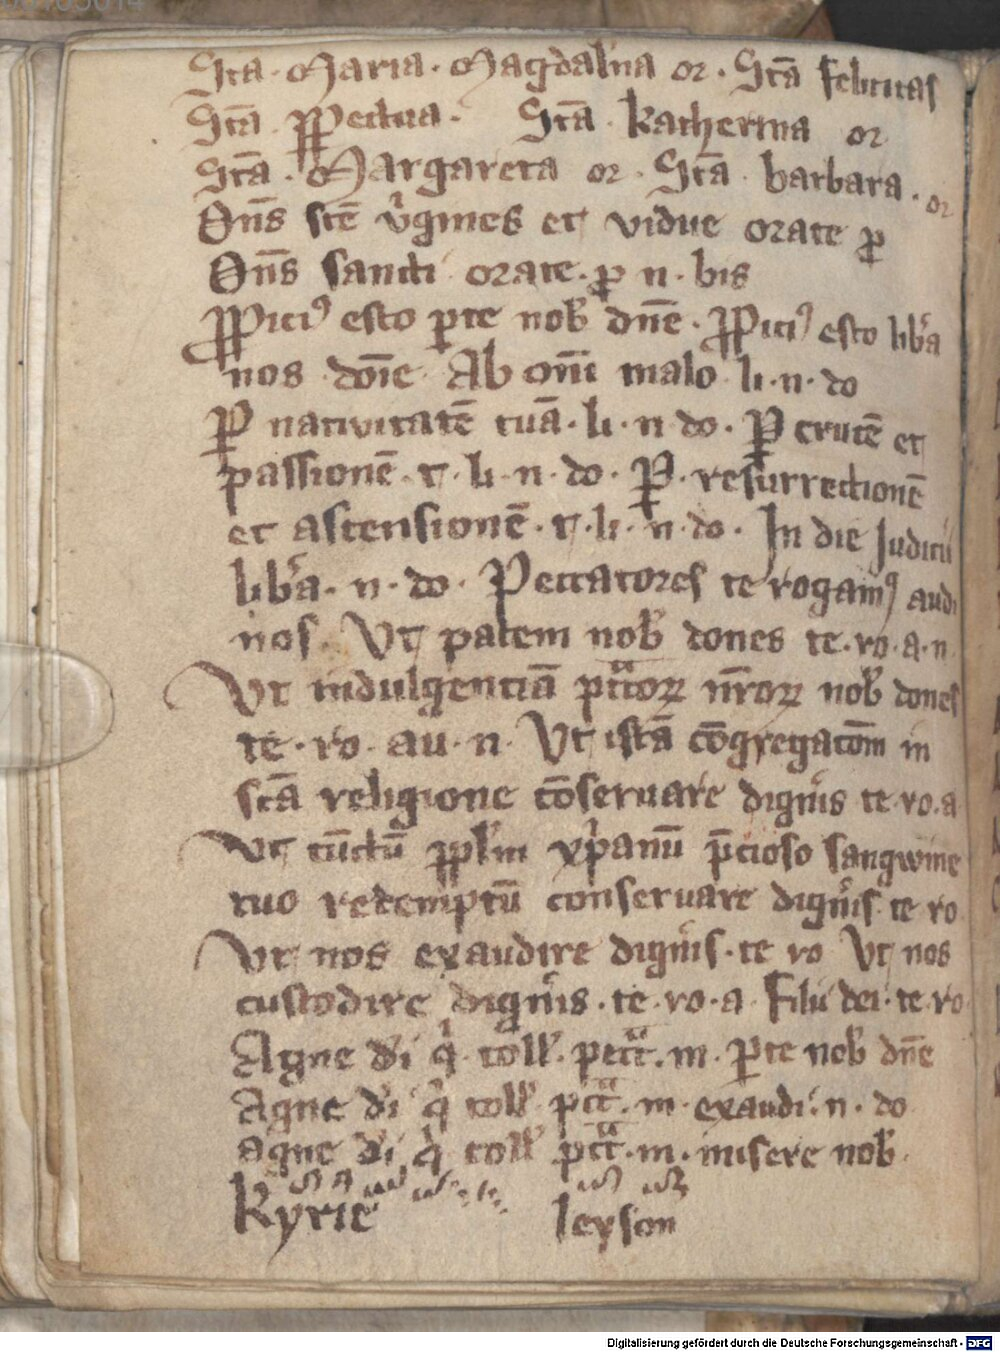 Sca · Maria · Magdalena or · Scā felicitas
Scā · ꝑpetua · Scā · katherina or
Scā · Margareta or · Scā · barbara · or
Om̄s scē v̓gines et vidue orate ꝓ
Om̄s sancti orate · ꝓ n · bis
Ꝓpiciꝰ esto ꝑce nob̓ dn̄e · Ꝓpiciꝰ esto lib̓a
nos don̄e Ab om̄i malo li · n · do
Ꝑ natiuitatē tuā · li · n · do · Ꝑ crucē et
passionē · t · li · n · do · Ꝑ · resurrectionē
et ascensionē · t · li · n · do · In die Judicii
lib̓a · n · do · Peccatores te rogamꝰ audi
nos Vt pacem nob̓ dones te · ro · a · n
Vt indulgentiā pctōꝝ nr̄oꝝ nob̓ dones
te · ro · au · n · Vt istā cōgregacōm in
scā religione cōseruare digneris te · ro · a
Vt cūctū ppl̓m xp̄anū p̄cioso sangwine
tuo redemptū conseruare digneris te ro
Vt nos exaudire digneris · te ro Vt nos
custodire digneris · te · ro · a fili dei · te · ro
Agne di qͥ toll̓ · pcctᵃ · m · Ꝑce nob̓ dn̄e
Agne di qͥ toll̓ pcctᵃ · m · exaudi · n · do
agne di qͥ toll̓ pcctᵃ · m · misere nob̓ ·
Kyrie leyson
Digitalisierung gefördert durch die Deutsche Forschungsgemeinschaft - DFG